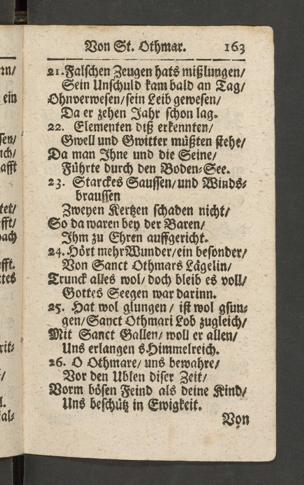 Von St. Othmar. 163
21. Falschen Zeugen hats mißlungen/
Sein Unschuld kam bald an Tag/
Ohnverwesen/sein Leib gewesen/
Da er zehen Jahr schon lag.
22. Elementen diß erkennten/
Gwell und Gwitter müßten stehe/
Da man Ihne und die Seine/
Führte durch den Boden-See.
23. Starckes Saussen/und Winds-
braussen
Zweyen Kertzen schaden nicht/
So da waren bey der Baren/
Ihm zu Ehren auffgericht.
24. Hört mehr Wunder/ein besonder/
Von Sanct Othmars Lägelin/
Trunck alles wol/doch bleib es voll/
Gottes Seegen war darinn.
25. Hat wol glungen/ ist wol gsun-
gen/Sanct Othmari Lob zugleich/
Mit Sanct Gallen/woll er allen/
Uns erlangen s Himmelreich.
26. O Othmare/ uns bewahre/
Vor den Ublen diser Zeit/
Vorm bösen Feind als deine Kind/
Uns beschütz in Ewigkeit.
Von